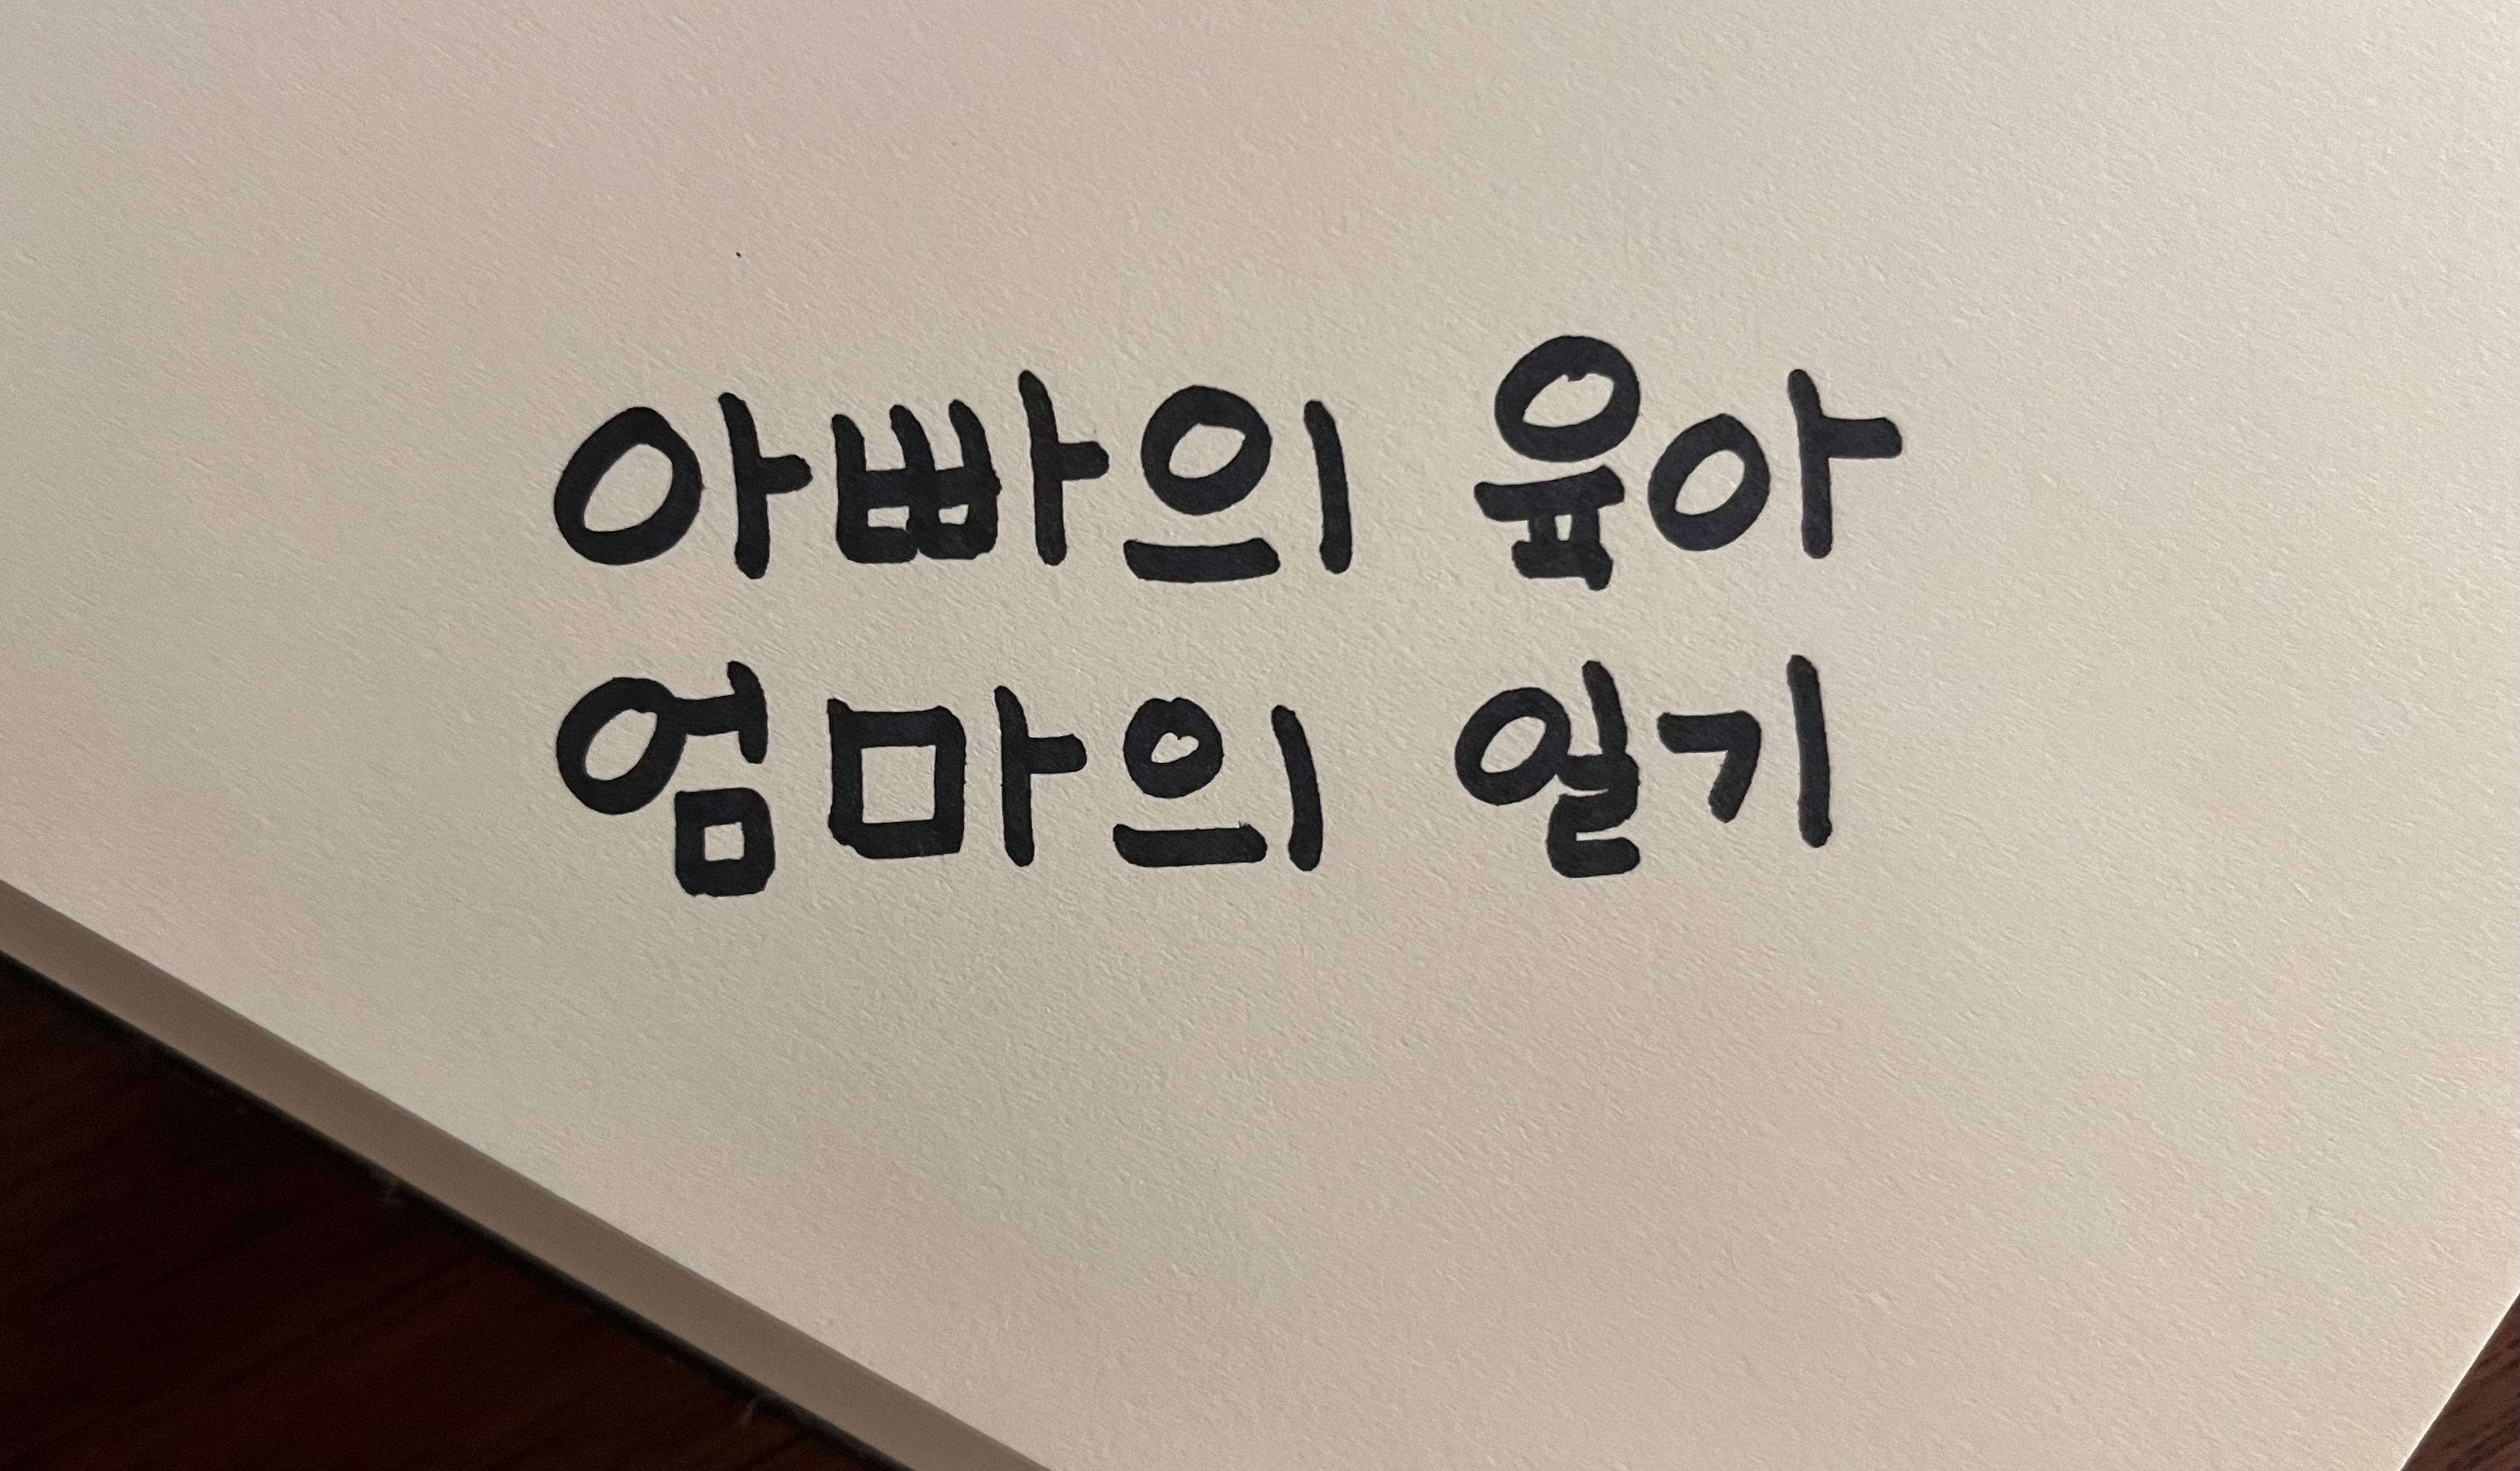 아빠의 육아
엄마의 일기